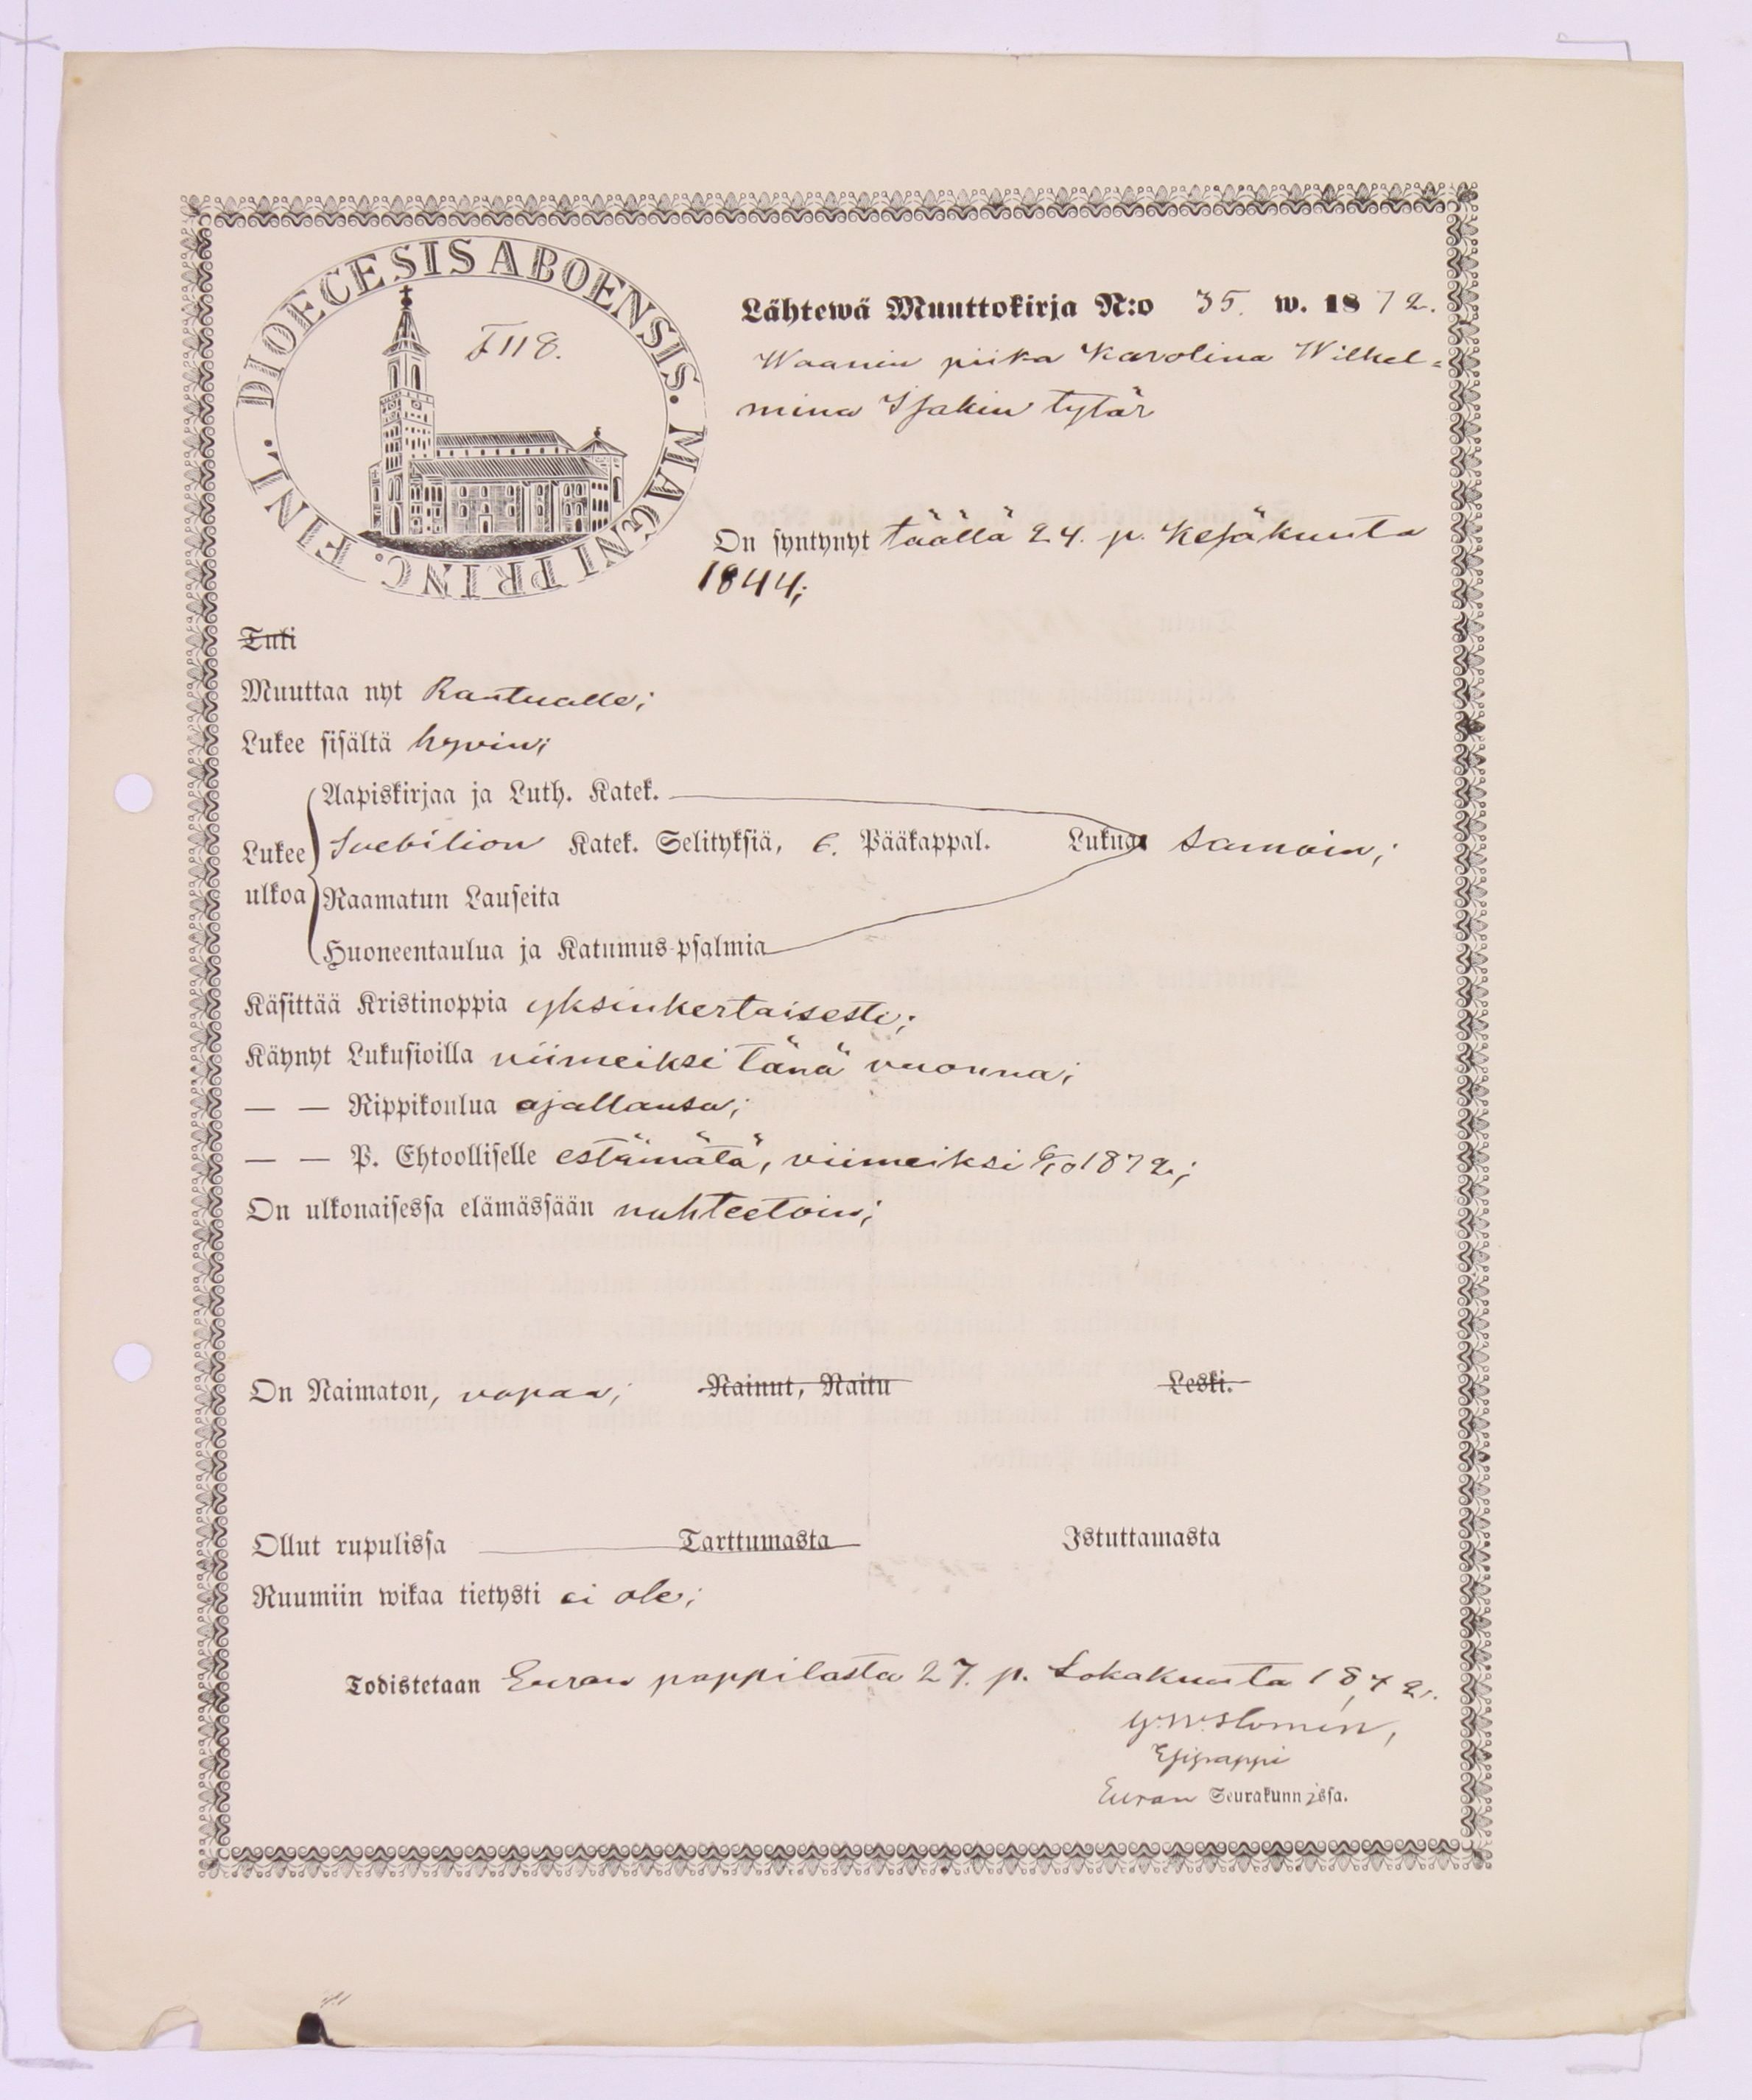 DIOECESIS ABOENSIS. MAGNI PRINC. FINL.
F 118.
Lähtewä Muuttokirja N:o 35. w. 1872.
Waanin piika Karolina Wilhel=
mina Isakin tytär
On syntynyt täällä 24. p. Kesäkuuta
1844;
Tuli
Muuttaa nyt Kantualle;
Lukee sisältä hyvin;
Aapiskirjaa ja Luth. Katek.
Lukee ulkoa Svebilion Katek. Selityksiä, 6. Pääkappal. Lukuja samoin;
Raamatun Lauseita
Huoneentaulua ja Katumus-psalmia
Käsittää Kristinoppia yksinkertaisesti;
Käynyt Lukusioilla viimeiksi tänä vuonna;
— — Rippikoulua ajallansa;
— — P. Ehtoolliselle estämätä, viimeiksi 6/10 1872;
On ulkonaisessa elämässään nuhteetoin;
On Naimaton, vapaa; Nainut, Naitu Leski.
Ollut rupulissa Tarttumasta Istuttamasta
Ruumiin wikaa tietysti ei ole;
Todistetaan Euran pappilasta 27. p. Lokakuuta 1872.
Esipappi
Euran Seurakunnissa.